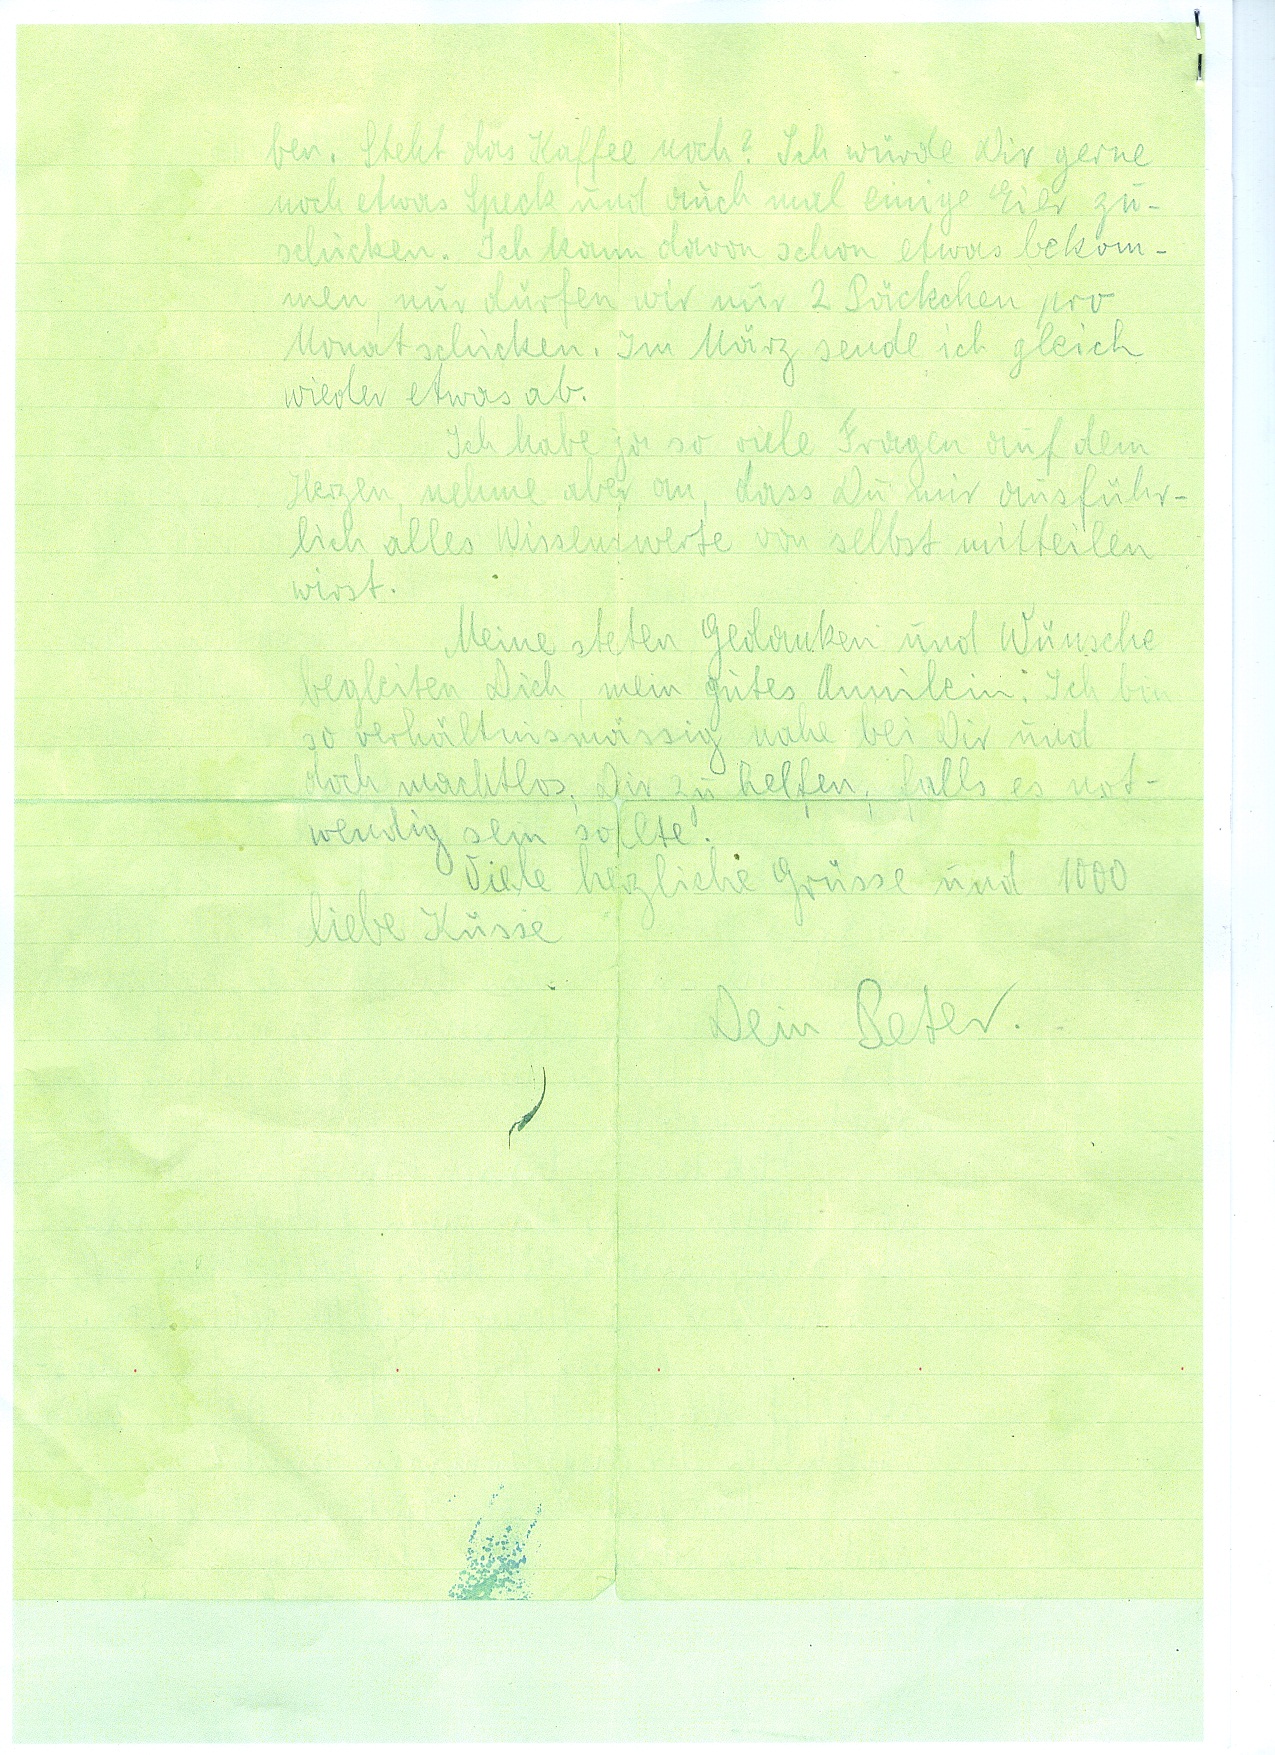 ben. Steht das Kaffee noch? Ich würde Dir gerne
noch etwas Speck und auch mal einige Eier zu-
schicken. Ich kann davon schon etwas bekom-
men, nur dürfen wir nur 2 Päckchen pro
Monat schicken. Im März sende ich gleich
wieder etwas ab.
Ich habe ja so viele Fragen auf dem
Herzen, nehme aber an, dass Du mir ausführ-
lich alles Wissenswerte von selbst mitteilen
wirst.
Meine steten Gedanken und Wünsche
begleiten Dich, mein gutes Annilein. Ich bin
so verhältnismässig nahe bei Dir und
doch machtlos, Dir zu helfen, falls es not-
wendig sein sollte!
Viele herzliche Grüsse und 1000
liebe Küsse
Dein Peter.